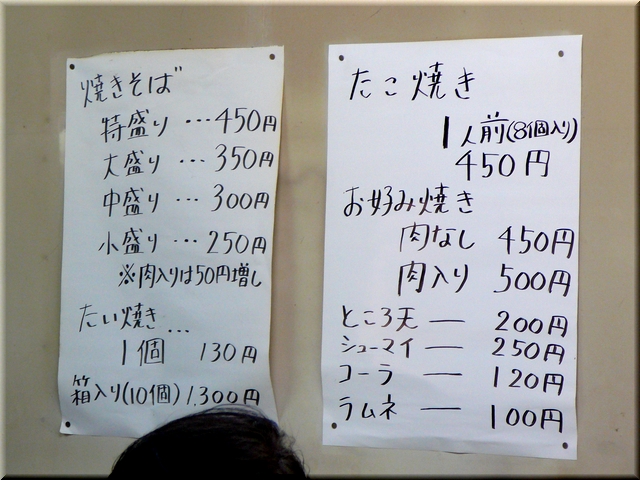 焼きそば
特盛り…450円
大盛り…350円
中盛り…300円
小盛り…250円
※肉入りは50円増し
たい焼き…
1個 130円
箱入り(10個)1,300円
たこ焼き
1人前(8個入り)
450円
お好み焼き
肉なし 450円
肉入り 500円
ところ天 ― 200円
シューマイ ― 250円
コーラ ― 120円
ラムネ ― 100円